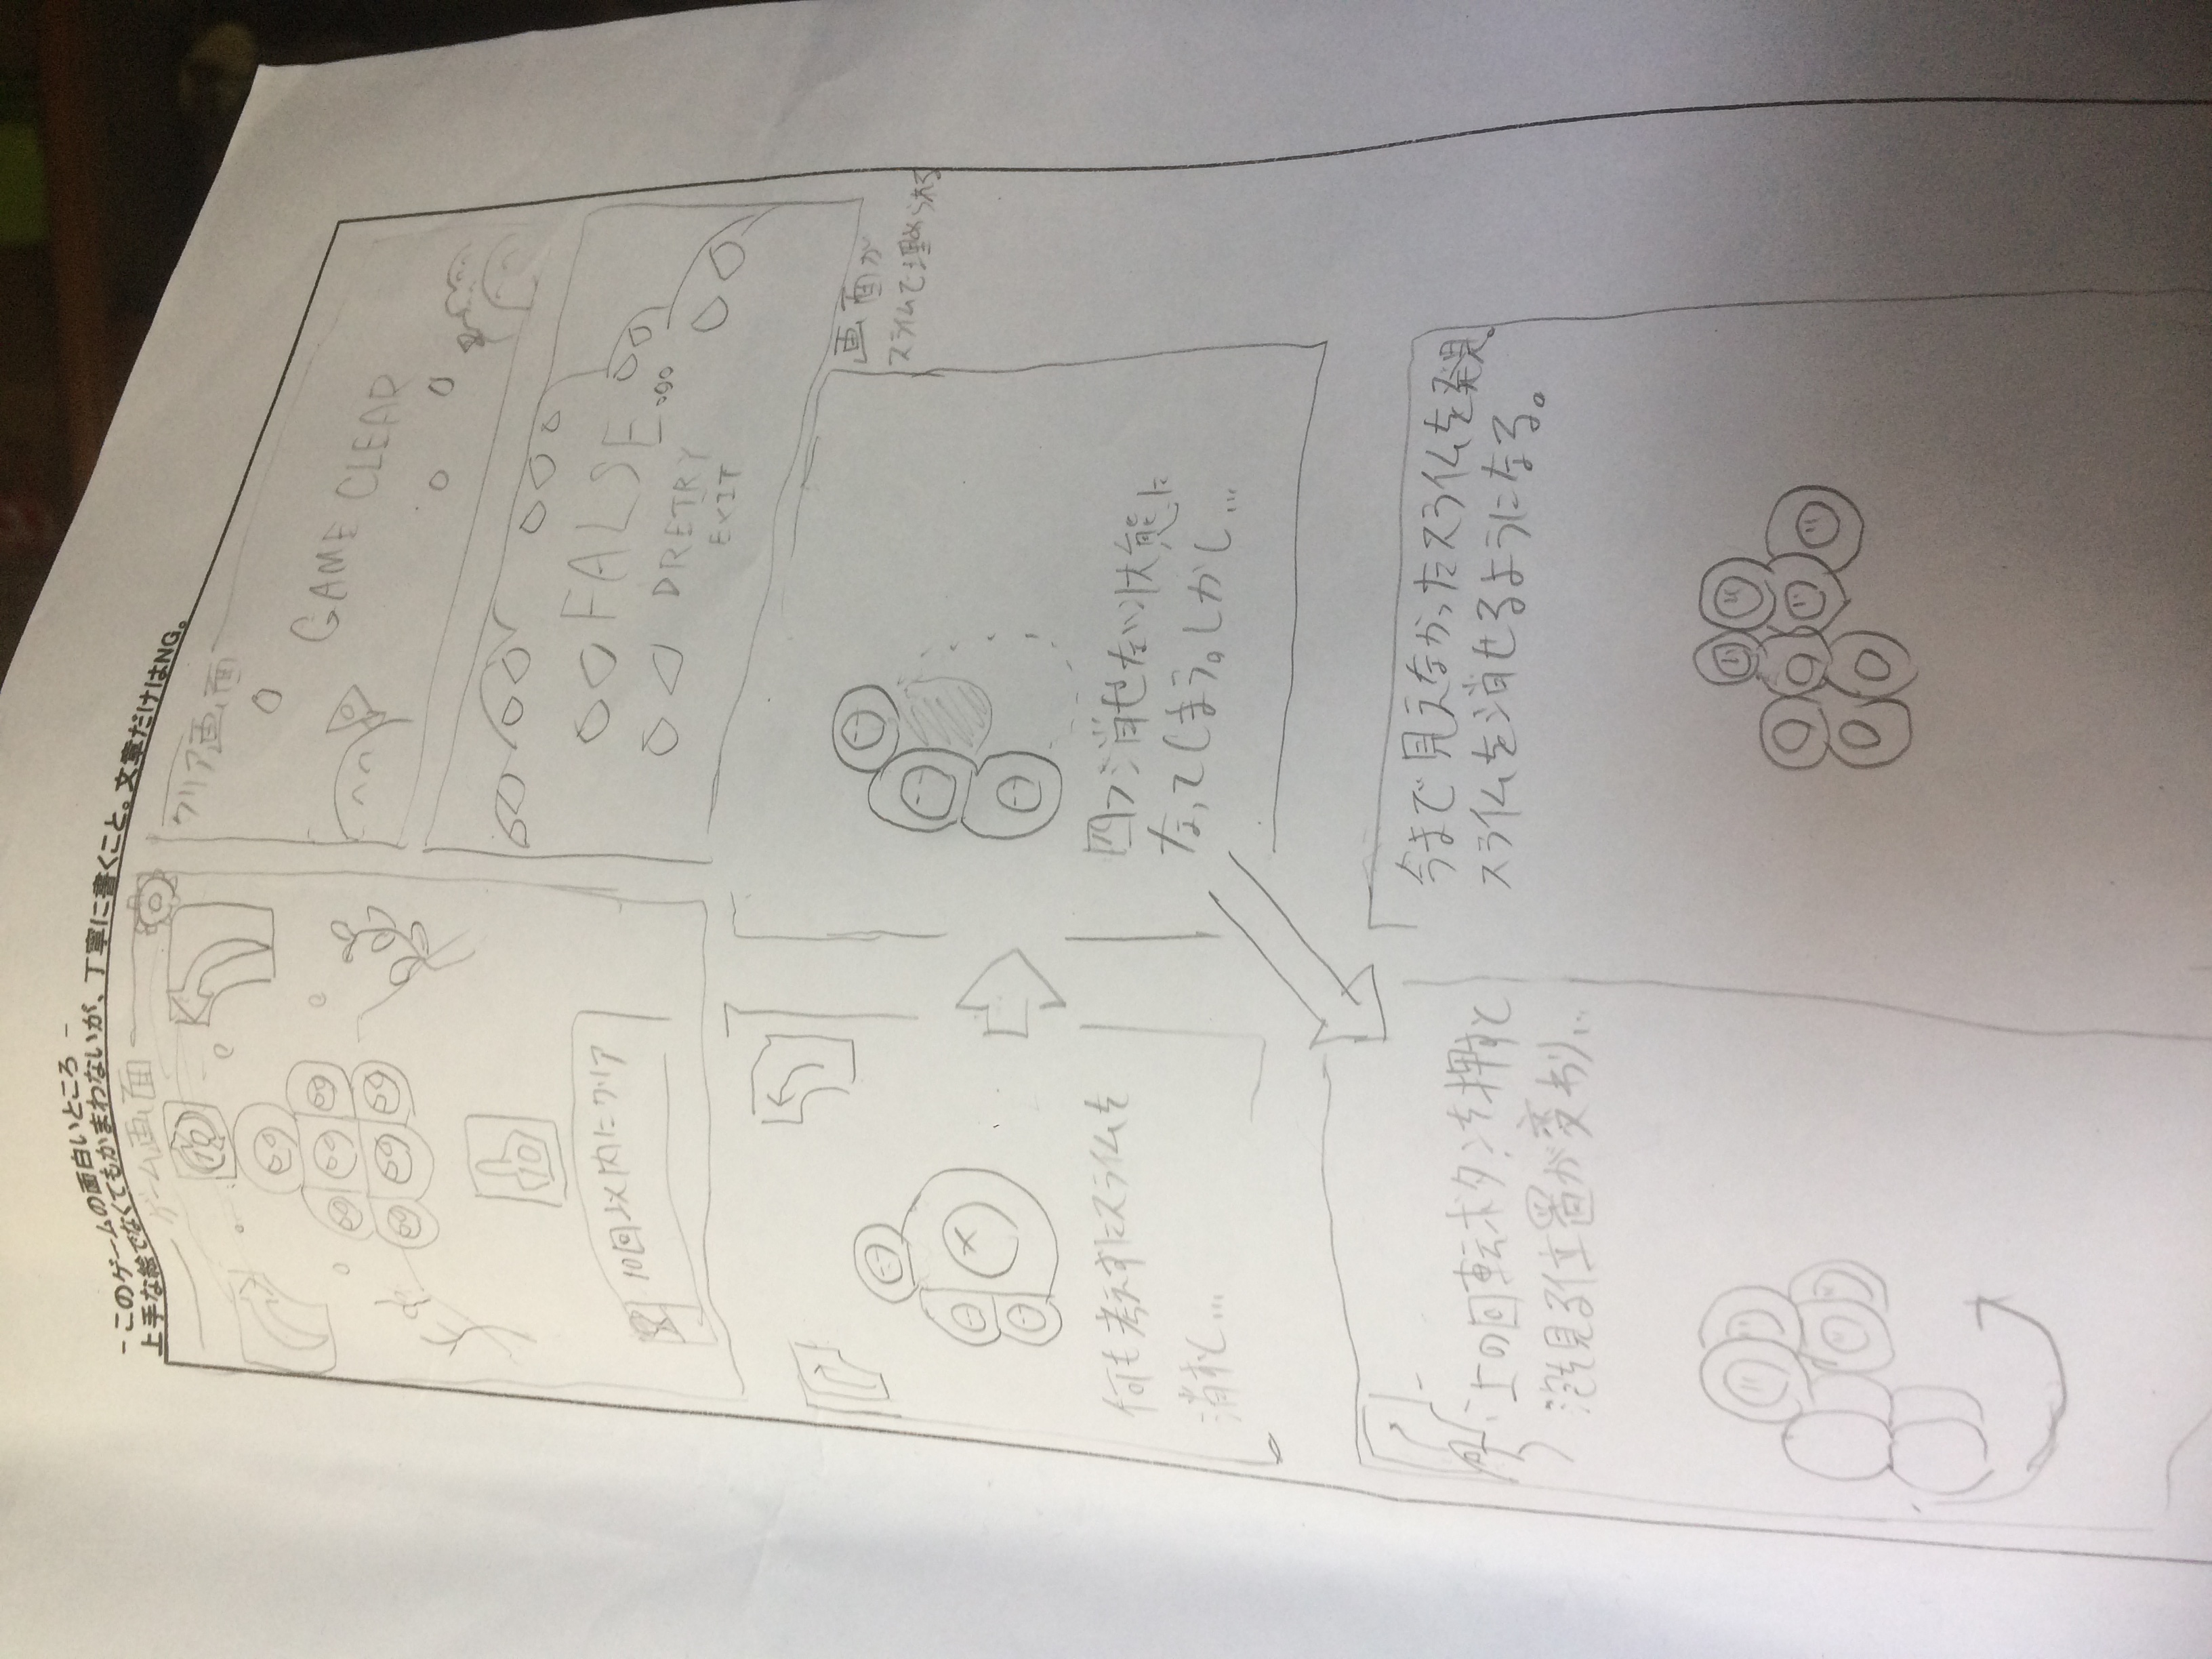 - このゲームの面白いところ -
上手な絵でなくてもかまわないが、丁寧に書くこと。文章だけはNG。
ゲーム画面
10
10
10回以内にクリア
クリア画面
GAME CLEAR
FALSE...
RETRY
EXIT
画面が
スライムで埋められる
何も考えずにスライムを
消すと...
四つ消せない状態に
なってしまう。しかし...
上の回転ボタンを押すと
泡を見る位置が変わり...
今まで見えなかったスライムを発見。
スライムを消せるようになる。